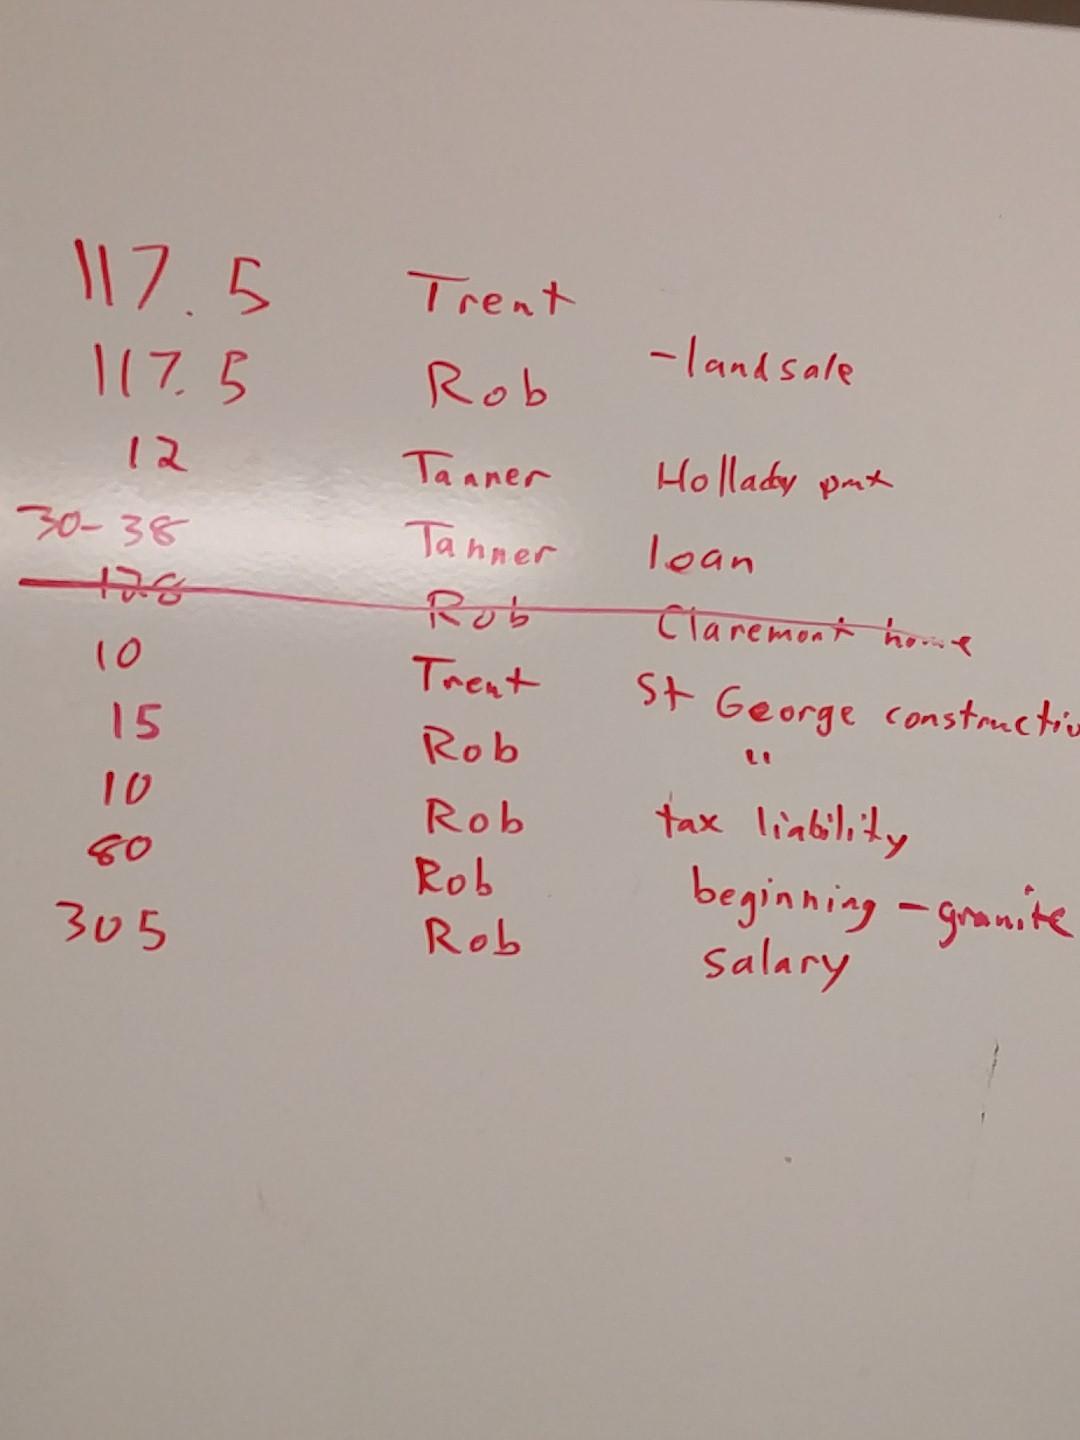 117.5 Trent
117.5 Rob -landsale
12 Tanner Holladay pmt
30-38 Tanner loan
128 Rob Claremont home
10 Trent St George constructio
15 Rob "
10 Rob tax liability
80 Rob beginning - granite
305 Rob salary